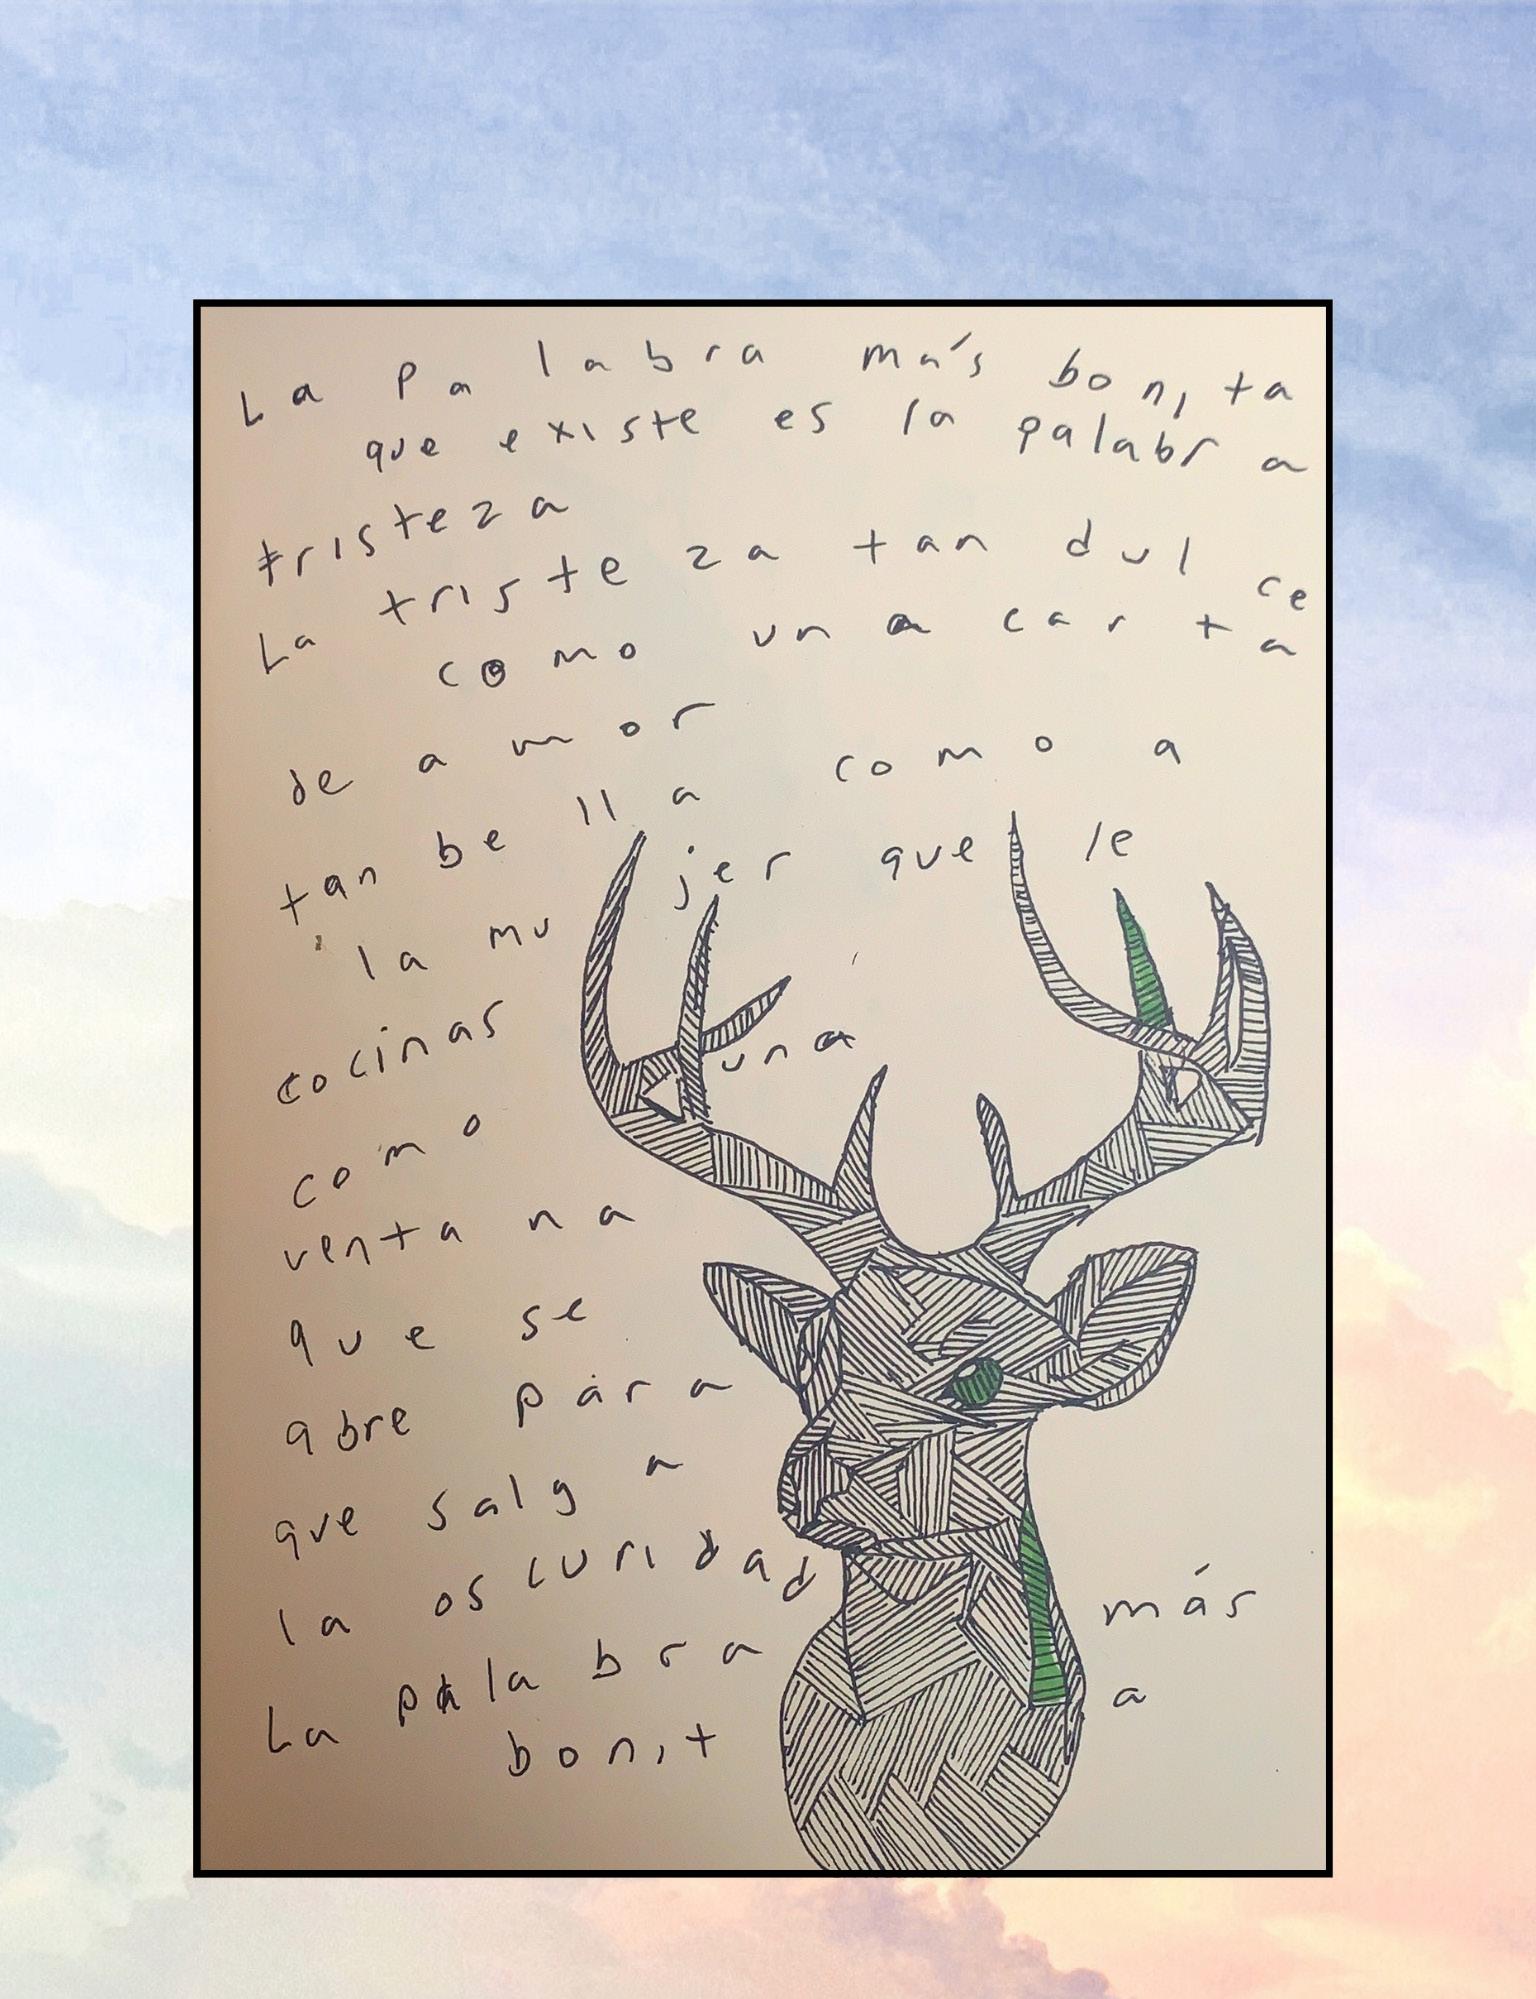 La palabra más bonita
que existe es la palabra
tristeza
La tristeza tan dulce
como una carta
de amor
tan bella como a
la mujer que le
cocinas
como una
ventana
que se
abre para
que salga
la oscuridad
La palabra más
bonita